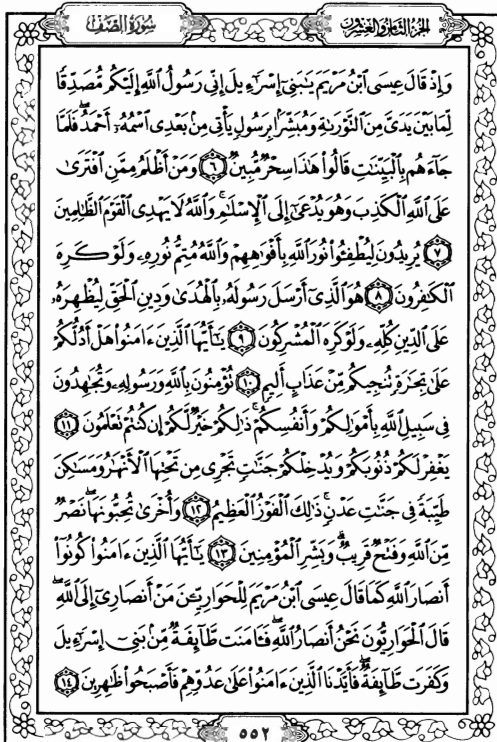 سُورَةُ الصَّفِّ
الجُزْءُ الثَّامِنُ وَالعِشْرُونَ
وَإِذۡ قَالَ عِيسَى ٱبۡنُ مَرۡيَمَ يَٰبَنِيٓ إِسۡرَٰٓءِيلَ إِنِّي رَسُولُ ٱللَّهِ إِلَيۡكُم مُّصَدِّقٗا
لِّمَا بَيۡنَ يَدَيَّ مِنَ ٱلتَّوۡرَىٰةِ وَمُبَشِّرَۢا بِرَسُولٖ يَأۡتِي مِنۢ بَعۡدِي ٱسۡمُهُۥٓ أَحۡمَدُۖ فَلَمَّا
جَآءَهُم بِٱلۡبَيِّنَٰتِ قَالُواْ هَٰذَا سِحۡرٞ مُّبِينٞ ٦ وَمَنۡ أَظۡلَمُ مِمَّنِ ٱفۡتَرَىٰ
عَلَى ٱللَّهِ ٱلۡكَذِبَ وَهُوَ يُدۡعَىٰٓ إِلَى ٱلۡإِسۡلَٰمِۚ وَٱللَّهُ لَا يَهۡدِي ٱلۡقَوۡمَ ٱلظَّٰلِمِينَ
٧ يُرِيدُونَ لِيُطۡفِـُٔواْ نُورَ ٱللَّهِ بِأَفۡوَٰهِهِمۡ وَٱللَّهُ مُتِمُّ نُورِهِۦ وَلَوۡ كَرِهَ
ٱلۡكَٰفِرُونَ ٨ هُوَ ٱلَّذِيٓ أَرۡسَلَ رَسُولَهُۥ بِٱلۡهُدَىٰ وَدِينِ ٱلۡحَقِّ لِيُظۡهِرَهُۥ
عَلَى ٱلدِّينِ كُلِّهِۦ وَلَوۡ كَرِهَ ٱلۡمُشۡرِكُونَ ٩ يَٰٓأَيُّهَا ٱلَّذِينَ ءَامَنُواْ هَلۡ أَدُلُّكُمۡ
عَلَىٰ تِجَٰرَةٖ تُنجِيكُم مِّنۡ عَذَابٍ أَلِيمٖ ١٠ تُؤۡمِنُونَ بِٱللَّهِ وَرَسُولِهِۦ وَتُجَٰهِدُونَ
فِي سَبِيلِ ٱللَّهِ بِأَمۡوَٰلِكُمۡ وَأَنفُسِكُمۡۚ ذَٰلِكُمۡ خَيۡرٞ لَّكُمۡ إِن كُنتُمۡ تَعۡلَمُونَ ١١
يَغۡفِرۡ لَكُمۡ ذُنُوبَكُمۡ وَيُدۡخِلۡكُمۡ جَنَّٰتٖ تَجۡرِي مِن تَحۡتِهَا ٱلۡأَنۡهَٰرُ وَمَسَٰكِنَ
طَيِّبَةٗ فِي جَنَّٰتِ عَدۡنٖۚ ذَٰلِكَ ٱلۡفَوۡزُ ٱلۡعَظِيمُ ١٢ وَأُخۡرَىٰ تُحِبُّونَهَاۖ نَصۡرٞ
مِّنَ ٱللَّهِ وَفَتۡحٞ قَرِيبٞۗ وَبَشِّرِ ٱلۡمُؤۡمِنِينَ ١٣ يَٰٓأَيُّهَا ٱلَّذِينَ ءَامَنُواْ كُونُوٓاْ
أَنصَارَ ٱللَّهِ كَمَا قَالَ عِيسَى ٱبۡنُ مَرۡيَمَ لِلۡحَوَارِيِّـۧنَ مَنۡ أَنصَارِيٓ إِلَى ٱللَّهِۖ
قَالَ ٱلۡحَوَارِيُّونَ نَحۡنُ أَنصَارُ ٱللَّهِۖ فَـَٔامَنَت طَّآئِفَةٞ مِّنۢ بَنِيٓ إِسۡرَٰٓءِيلَ
وَكَفَرَت طَّآئِفَةٞۖ فَأَيَّدۡنَا ٱلَّذِينَ ءَامَنُواْ عَلَىٰ عَدُوِّهِمۡ فَأَصۡبَحُواْ ظَٰهِرِينَ ١٤
٥٥٢